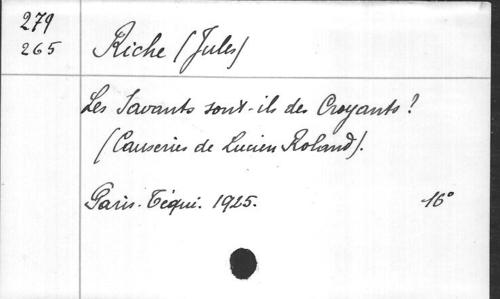 279
265
Riche (Jules)
Les Savants sont-ils des Croyants?
(Causeries de Lucien Roland).
Paris. Téqui. 1925. 16°